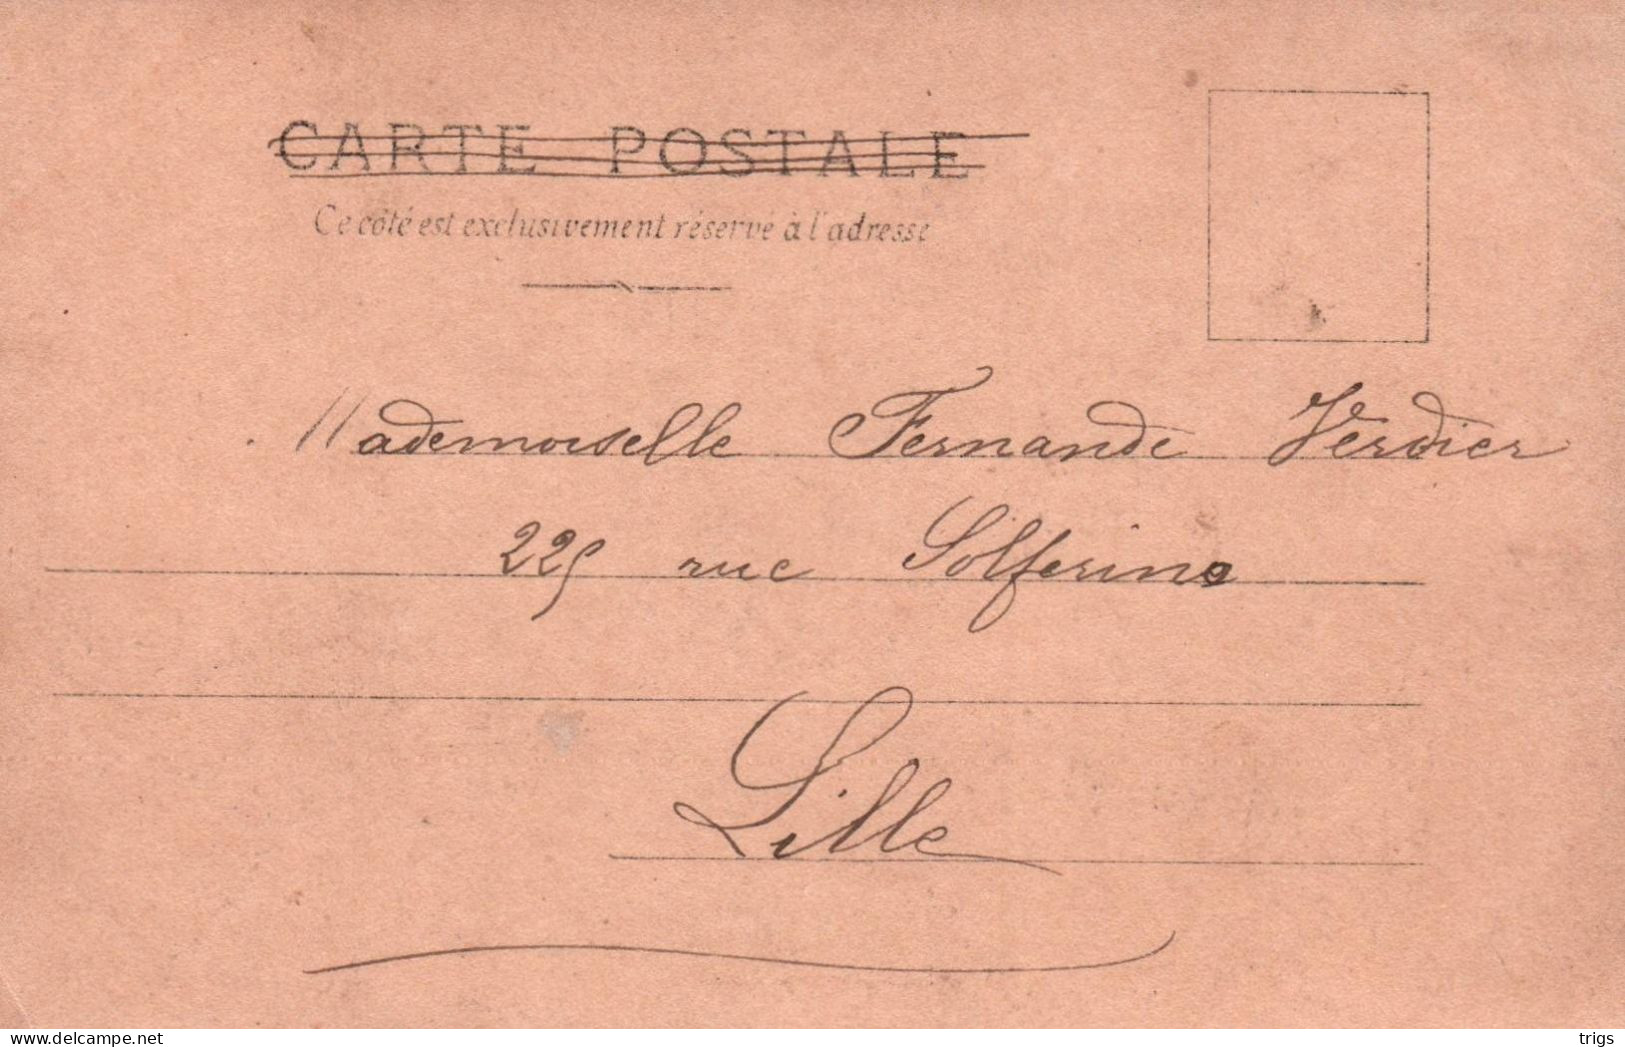 CARTE POSTALE
Ce côté est exclusivement réservé à l'adresse
Mademoiselle Fernande Verdier
225 rue Solferino
Lille
delcampe.net
trigs